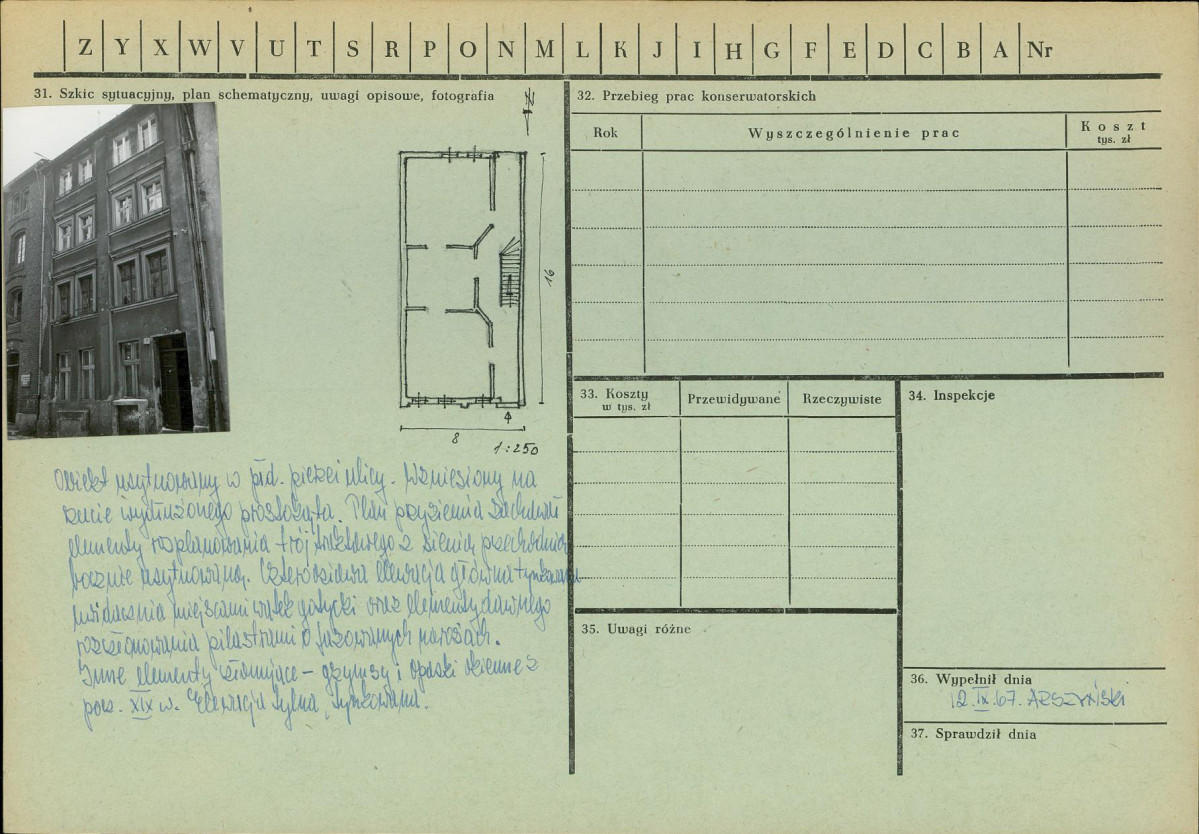 Z Y X W V U T S R P O N M L K J I H G F E D C B A Nr
31. Szkic sytuacyjny, plan schematyczny, uwagi opisowe, fotografia
N
16
8
1:250
Obiekt usytuowany w płd. pierzei ulicy. Wzniesiony na
rzucie wydłużonego prostokąta. Plan przyziemia zachował
elementy rozplanowania trójtraktowego z sienią przechodnią
bocznie usytuowaną. Czteroosiowa elewacja główna tynkowana
uwidacznia miejscami wątek gotycki oraz elementy dawnego
rozczłonowania pilastrami o fazowanych narożach.
Inne elementy członujące – gzymsy i opaski okienne z
pocz. XIX w. Elewacja tylna tynkowana.
32. Przebieg prac konserwatorskich
Rok Wyszczególnienie prac Koszt
tys. zł
33. Koszty
w tys. zł
Przewidywane Rzeczywiste
34. Inspekcje
35. Uwagi różne
36. Wypełnił dnia
12.IX.67. ARSZYŃSKI
37. Sprawdził dnia